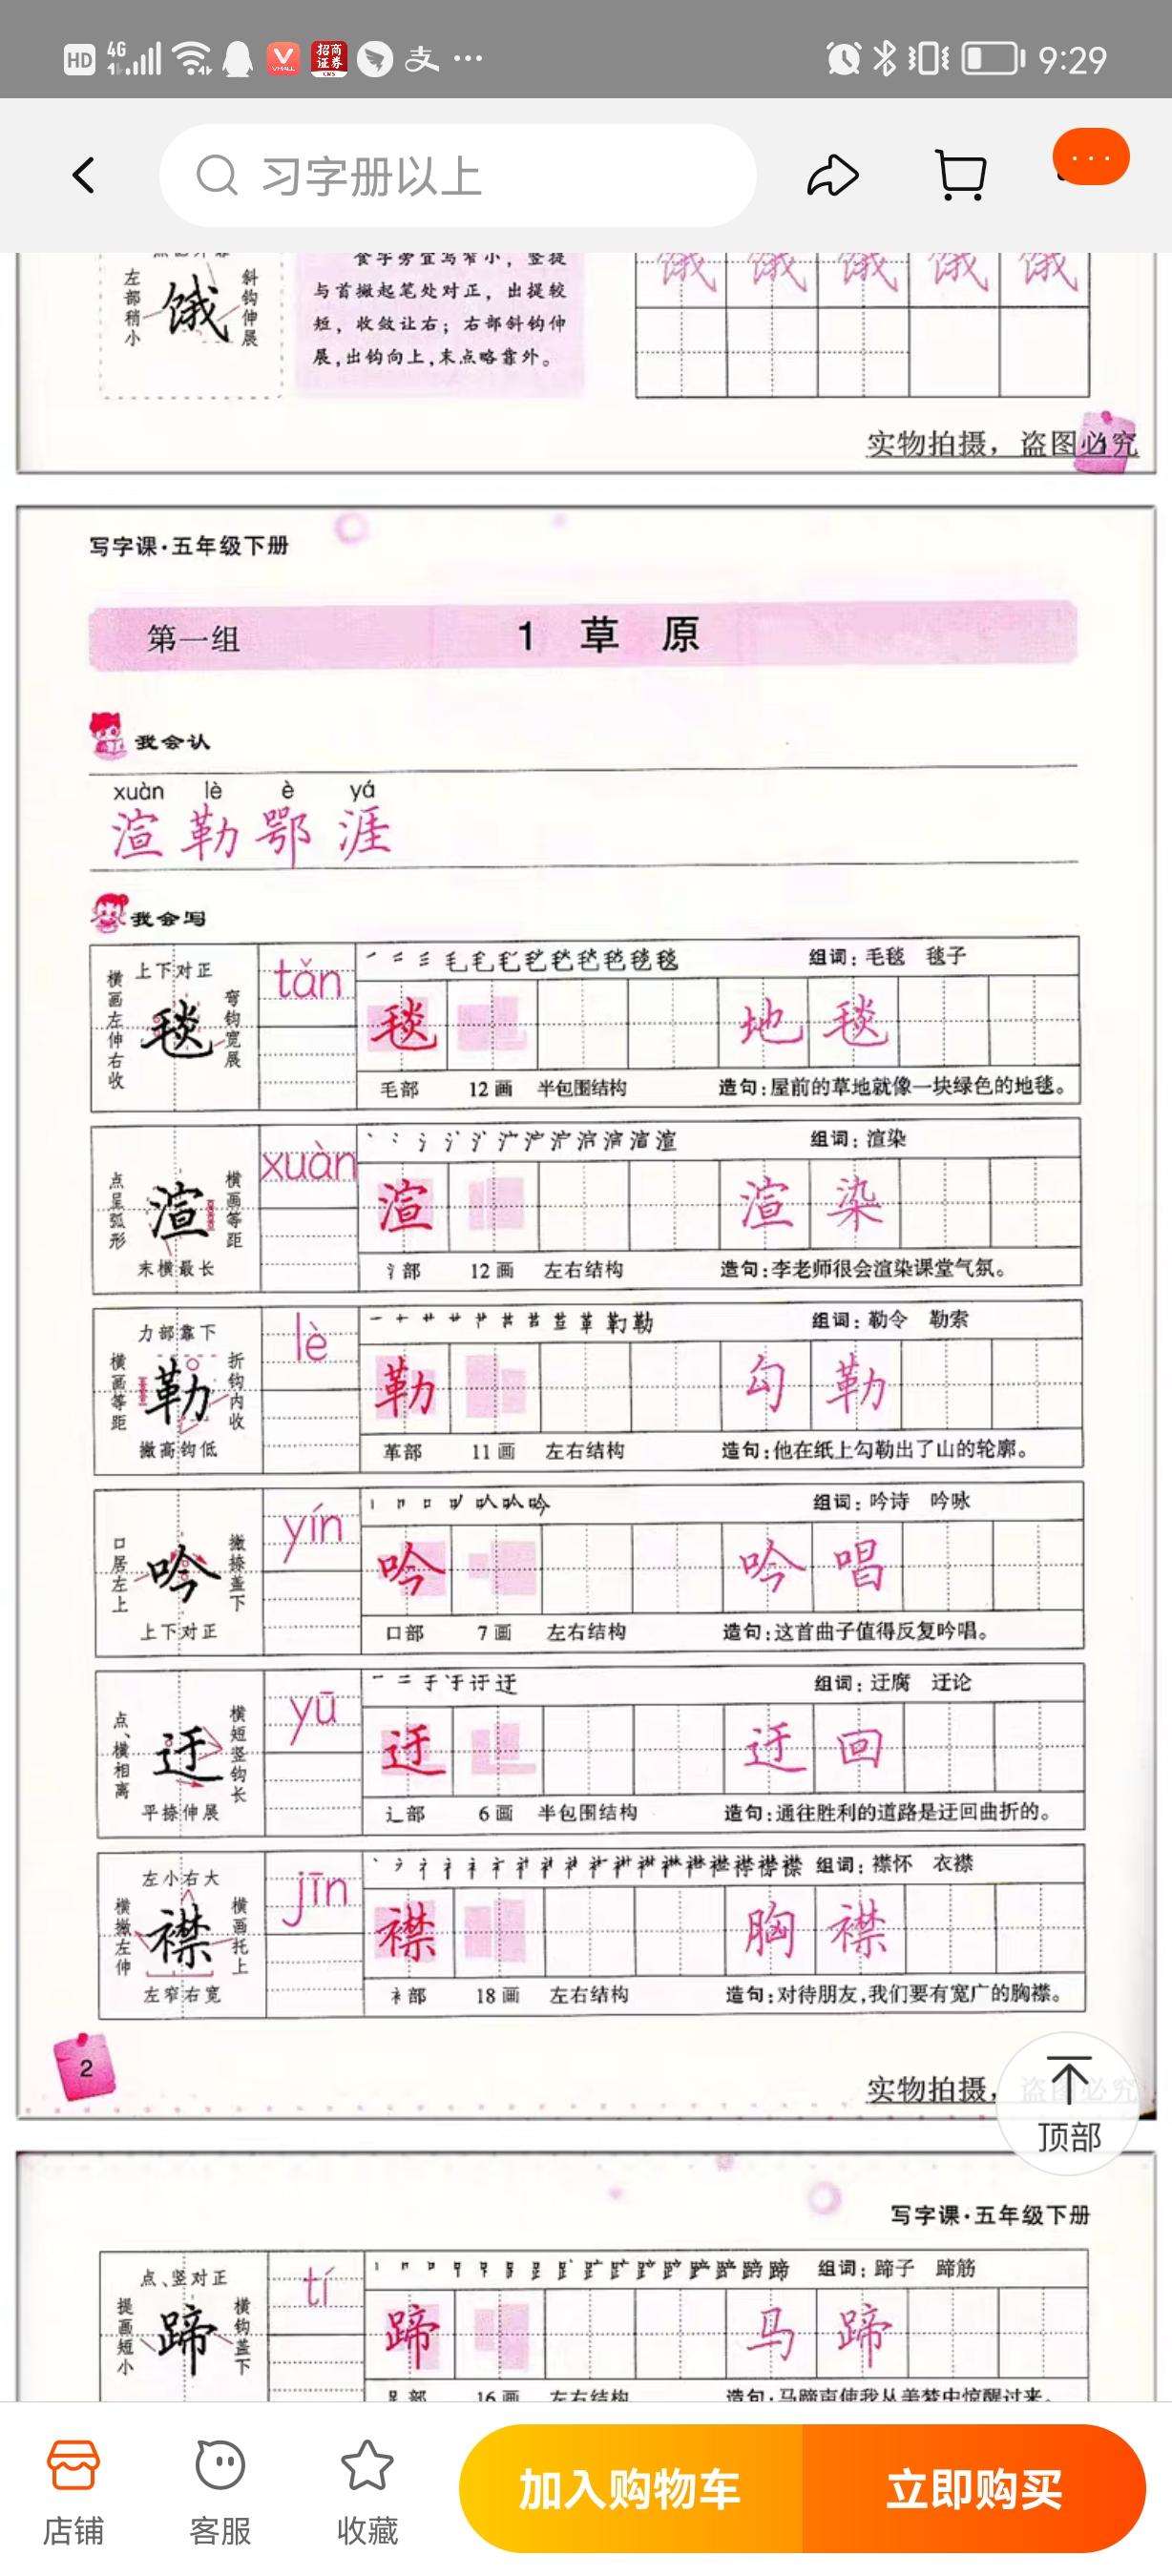 HD 4G 招商证券 支 ··· 9:29
习字册以上
左部稍小
饿
斜钩伸展
食字旁宜写窄小，竖提
与首撇起笔处对正，出提较
短，收敛让右；右部斜钩伸
展，出钩向上，末点略靠外。
饿 饿 饿 饿 饿
实物拍摄，盗图必究
写字课·五年级下册
第一组 1 草 原
我会认
xuàn lè è yá
渲 勒 鄂 涯
我会写
上下对正
横画左伸右收
毯
弯钩宽展
tǎn
组词：毛毯 毯子
毯 地 毯
毛部 12 画 半包围结构 造句：屋前的草地就像一块绿色的地毯。
点呈弧形
渲
横画等距
末横最长
xuàn
组词：渲染
渲 渲 染
氵部 12 画 左右结构 造句：李老师很会渲染课堂气氛。
力部靠下
横画等距
勒
折钩内收
撇高钩低
lè
组词：勒令 勒索
勒 勾 勒
革部 11 画 左右结构 造句：他在纸上勾勒出了山的轮廓。
口居左上
吟
撇捺盖下
上下对正
yín
组词：吟诗 吟咏
吟 吟 唱
口部 7 画 左右结构 造句：这首曲子值得反复吟唱。
点、横相离
迂
横短竖钩长
平捺伸展
yū
组词：迂腐 迂论
迂 迂 回
辶部 6 画 半包围结构 造句：通往胜利的道路是迂回曲折的。
左小右大
横撇左伸
襟
横画托上
左窄右宽
jīn
组词：襟怀 衣襟
襟 胸 襟
衤部 18 画 左右结构 造句：对待朋友，我们要有宽广的胸襟。
2
实物拍摄，盗图必究
顶部
写字课·五年级下册
点、竖对正
提画短小
蹄
横钩盖下
tí
组词：蹄子 蹄筋
蹄 马 蹄
𧾷部 16 画 左右结构 造句：马蹄声使我从美梦中惊醒过来。
店铺 客服 收藏 加入购物车 立即购买